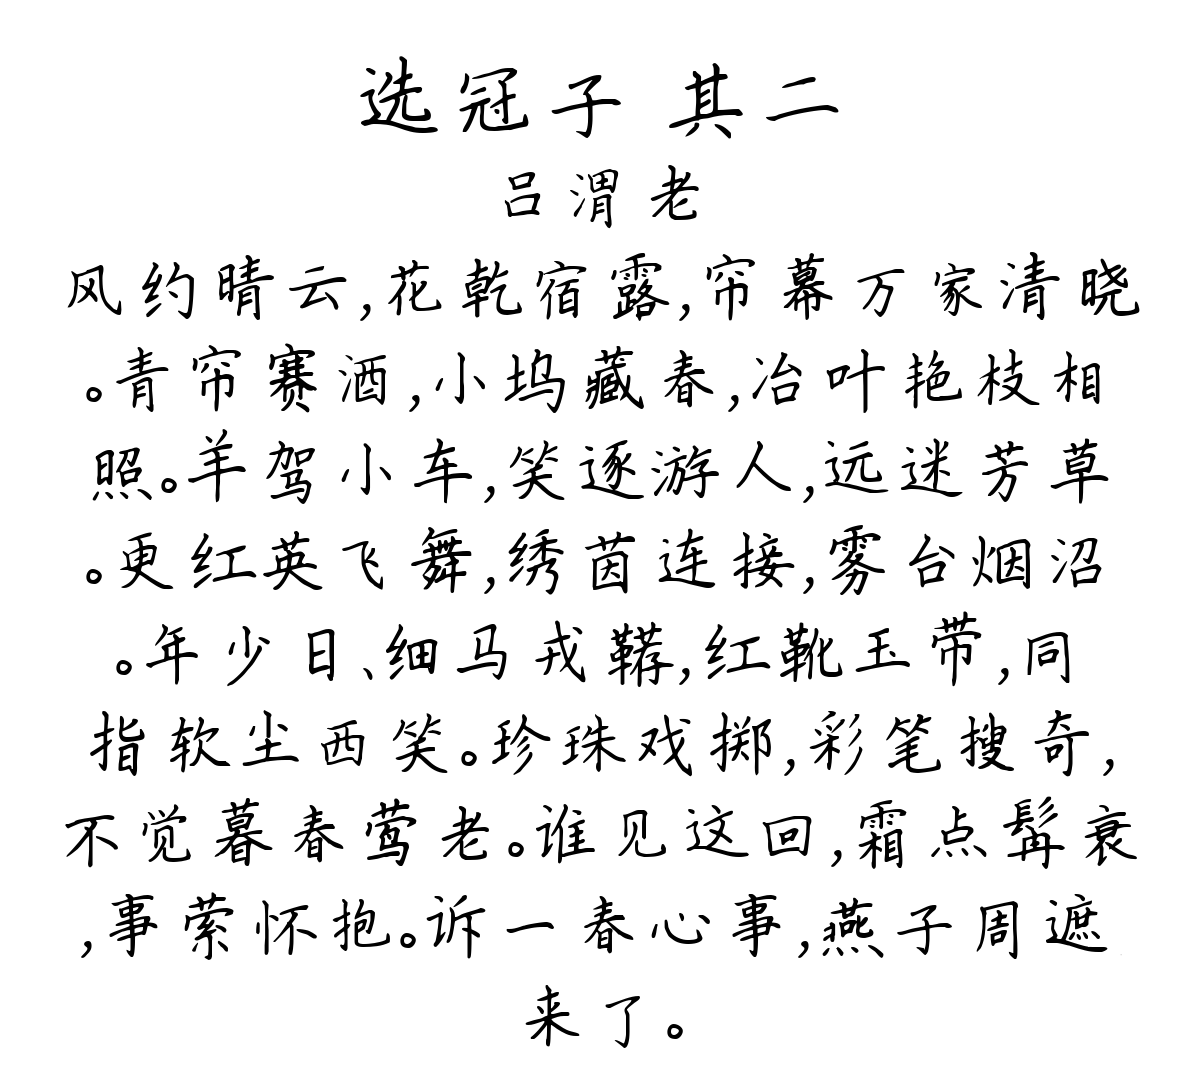 选冠子 其二
吕渭老
风约晴云,花乾宿露,帘幕万家清晓
。青帘赛酒,小坞藏春,冶叶艳枝相
照。羊驾小车,笑逐游人,远迷芳草
。更红英飞舞,绣茵连接,雾台烟沼
。年少日、细马戎鞯,红靴玉带,同
指软尘西笑。珍珠戏掷,彩笔搜奇,
不觉暮春莺老。谁见这回,霜点髯衰
,事萦怀抱。诉一春心事,燕子周遮
来了。